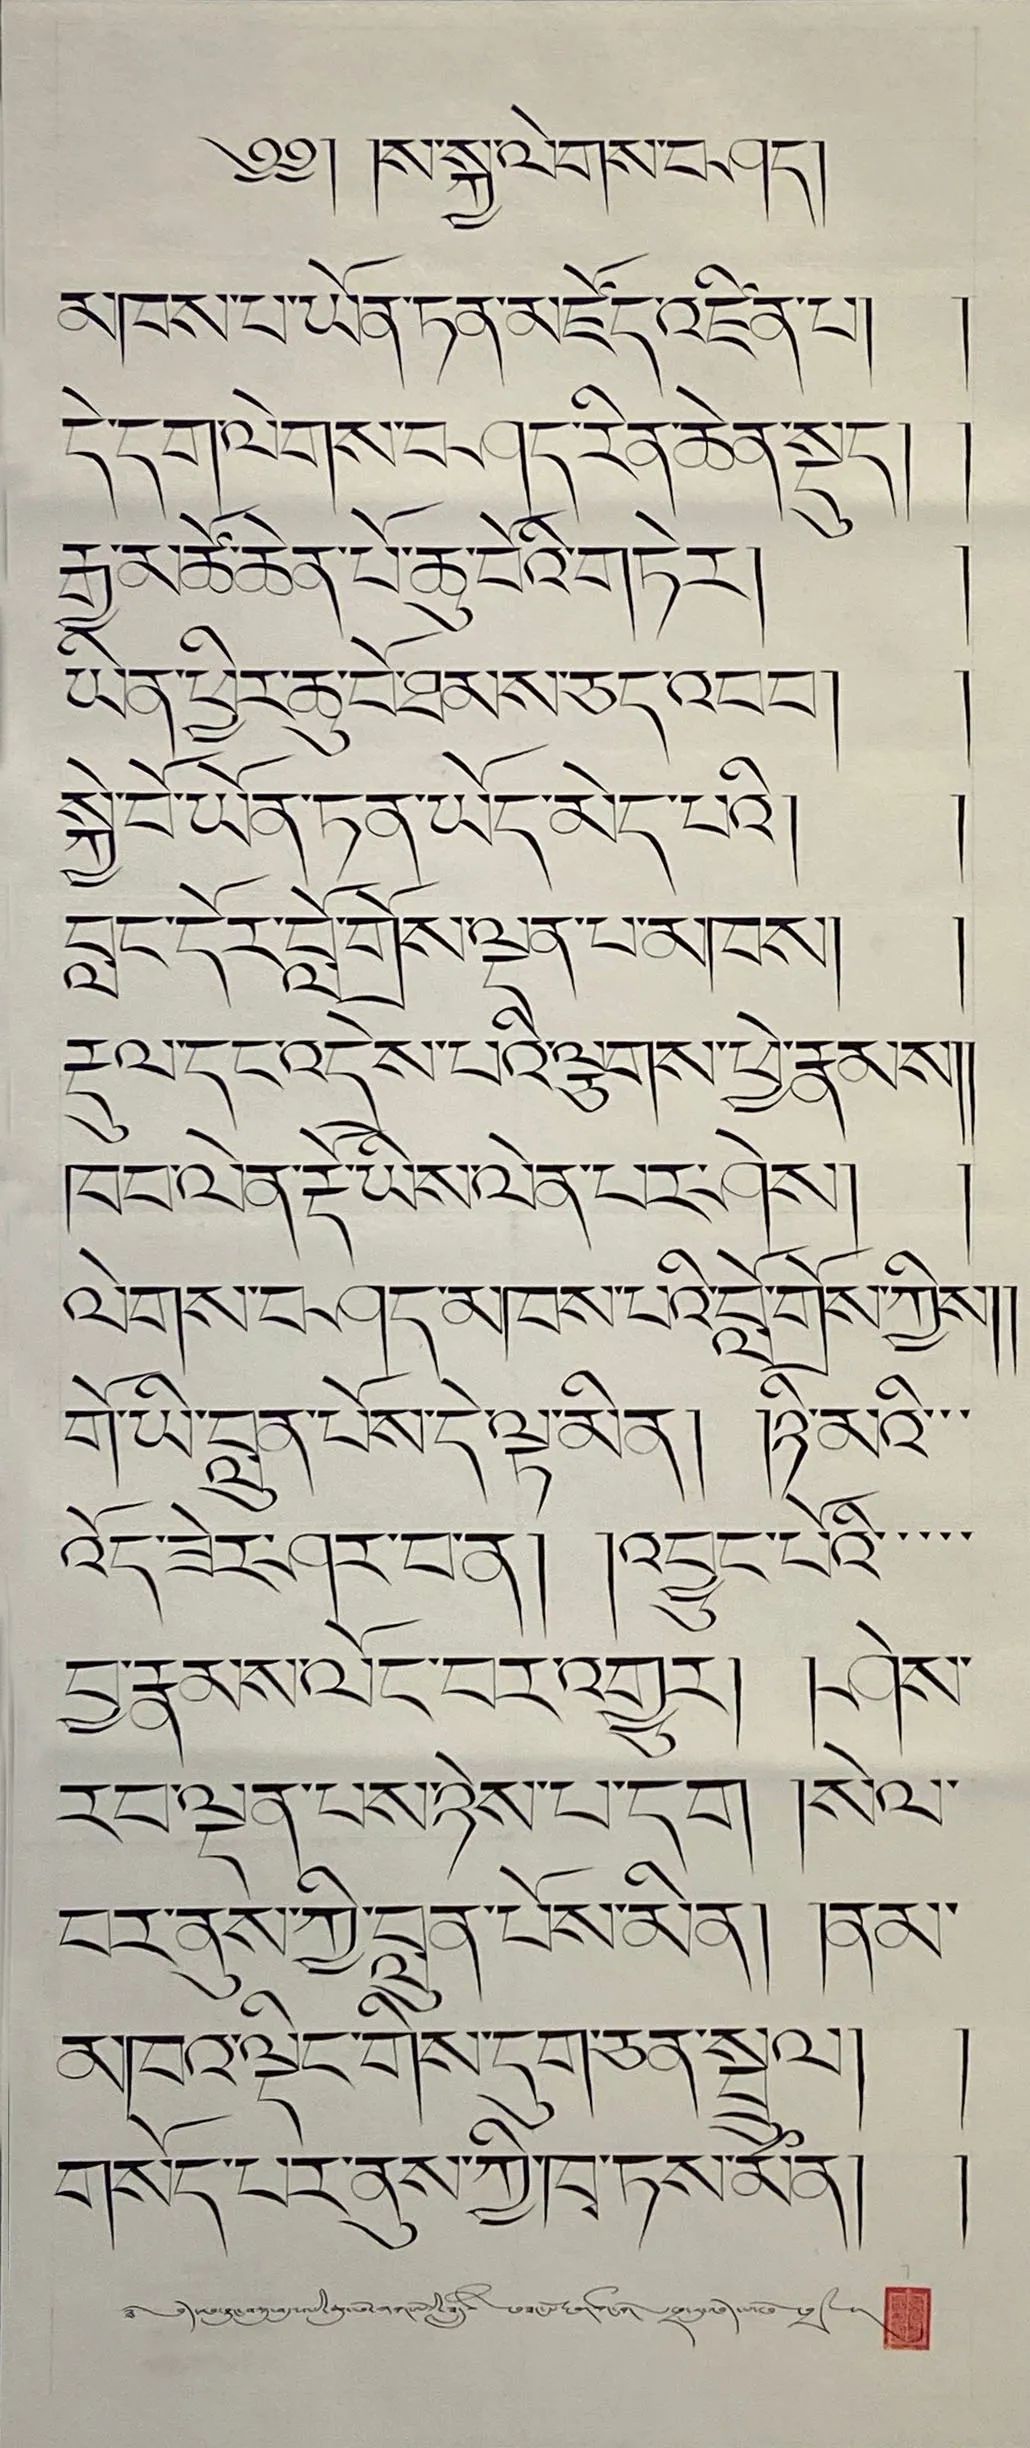 ༄༅། །ས་སྐྱ་ལེགས་བཤད།
མཁས་པ་ཡོན་ཏན་མཛོད་འཛིན་པ། །
དེ་དག་ལེགས་བཤད་རིན་ཆེན་སྡུད། །
རྒྱ་མཚོ་ཆེན་པོ་ཆུ་བོའི་གཏེར། །
ཡིན་ཕྱིར་ཆུ་བོ་ཐམས་ཅད་འབབ། །
སྐྱེ་བོ་ཡོན་ཏན་ཡོད་མེད་པའི། །
བླང་དོར་བློ་གྲོས་ལྡན་པ་མཁས། །
རྡུལ་དང་འདྲེས་པའི་ལྕགས་ཕྱེ་རྣམས།།
ཁབ་ལེན་རྡོ་ཡིས་ལེན་པར་ཤེས། །
ལེགས་བཤད་མཁས་པའི་བློ་གྲོས་ཀྱིས།།
གོ་ཡི་བླུན་པོས་དེ་ལྟ་མིན། །ཉི་མའི་
འོད་ཟེར་ཤར་བ་ན། །འབྱུང་པོའི་
བྱ་རྣམས་ལོང་བར་འགྱུར། །ཤེས་
རབ་ལྡན་པས་ཉེས་པ་དག །སེལ་
བར་ནུས་ཀྱི་བླུན་པོས་མིན། །ནམ་
མཁའ་ལྡིང་གིས་དུག་ཅན་སྦྲུལ། །
གསོད་པར་ནུས་ཀྱི་ཁྭ་ཏས་མིན། །